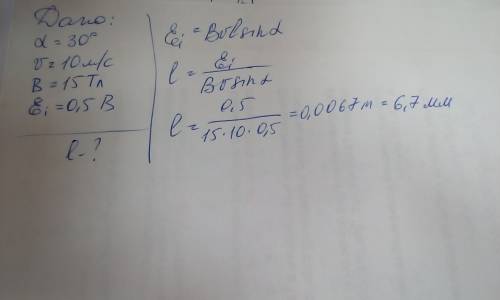 Дано:
α = 30°
v = 10 м/с
B = 15 Тл
Ei = 0,5 В
l - ?
Ei = Bvl sinα
l = Ei / Bv sinα
l = 0,5 / 15·10·0,5 = 0,0067 m = 6,7 мм